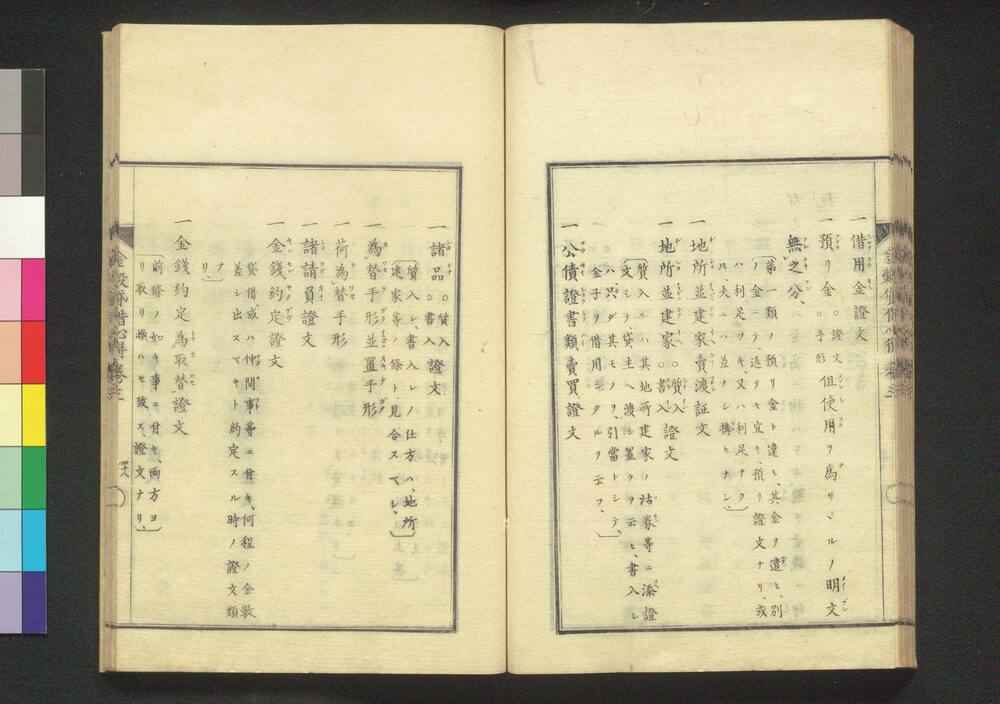 一借用金證文
一預リ金○證文○手形但使用ヲ爲サヾルノ明文
無之分
第一類ノ預リ金ト違ヒ、其金ヲ遣ヒ、別
ノ金ニテ、返テモ宜キ、預リ證文ナリ、或
ハ利足ヲツキ又ハ利足ナク
一地所並建家賣渡証文
一地所並建家○質入○書入證文
質入ハ其地所建家ノ沽券等ニ添證
文シテ、貸主ヘ渡シ置クヲ云ヒ、書入レ
ハ、只ダ其モノヲ、引當トシテ、
金子リ借用シタルヲ云フ、
一公債證書類賣買證文
一諸品○質入○書入證文
質入レ、書入レノ仕方ハ、地所
建家等ノ條ト、見合スベシ、
一為替手形並置手形
一荷為替手形
一諸請負證文
一金錢約定證文
貸借、或ハ仲間事等ニ付キ、何程ノ金數
差シ出スベキト約定スル時ノ證文類
ナリ、
一金錢約定為取替證文
前條ノ如キ事ニ付キ、兩方ヨ
リ取リ換ハセ致ス、證文ナリ、